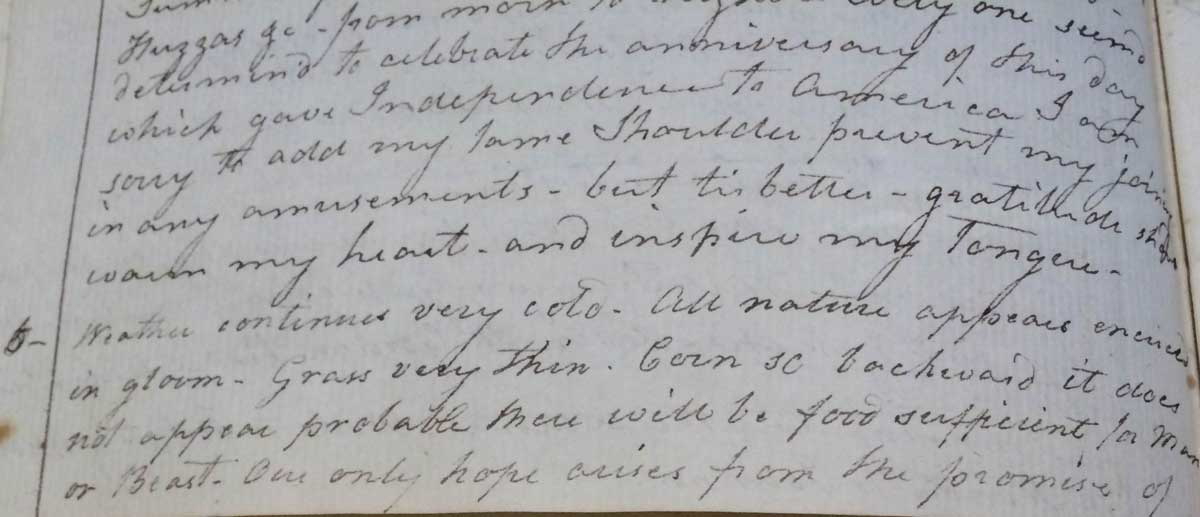 Huzzas &c - from morn to night every one seemd
determind to celebrate the anniversary of this day
which gave Independence to America I am
sorry to add my lame Shoulder prevent my joining
in any amusements - but tis better - gratitude should
warm my heart - and inspire my Tongue -
6- Weather continues very cold - All nature appears encircled
in gloom - Grass very thin. Corn so backward it does
not appear probable there will be food sufficient for Man
or Beast - Our only hope arises from the promise of